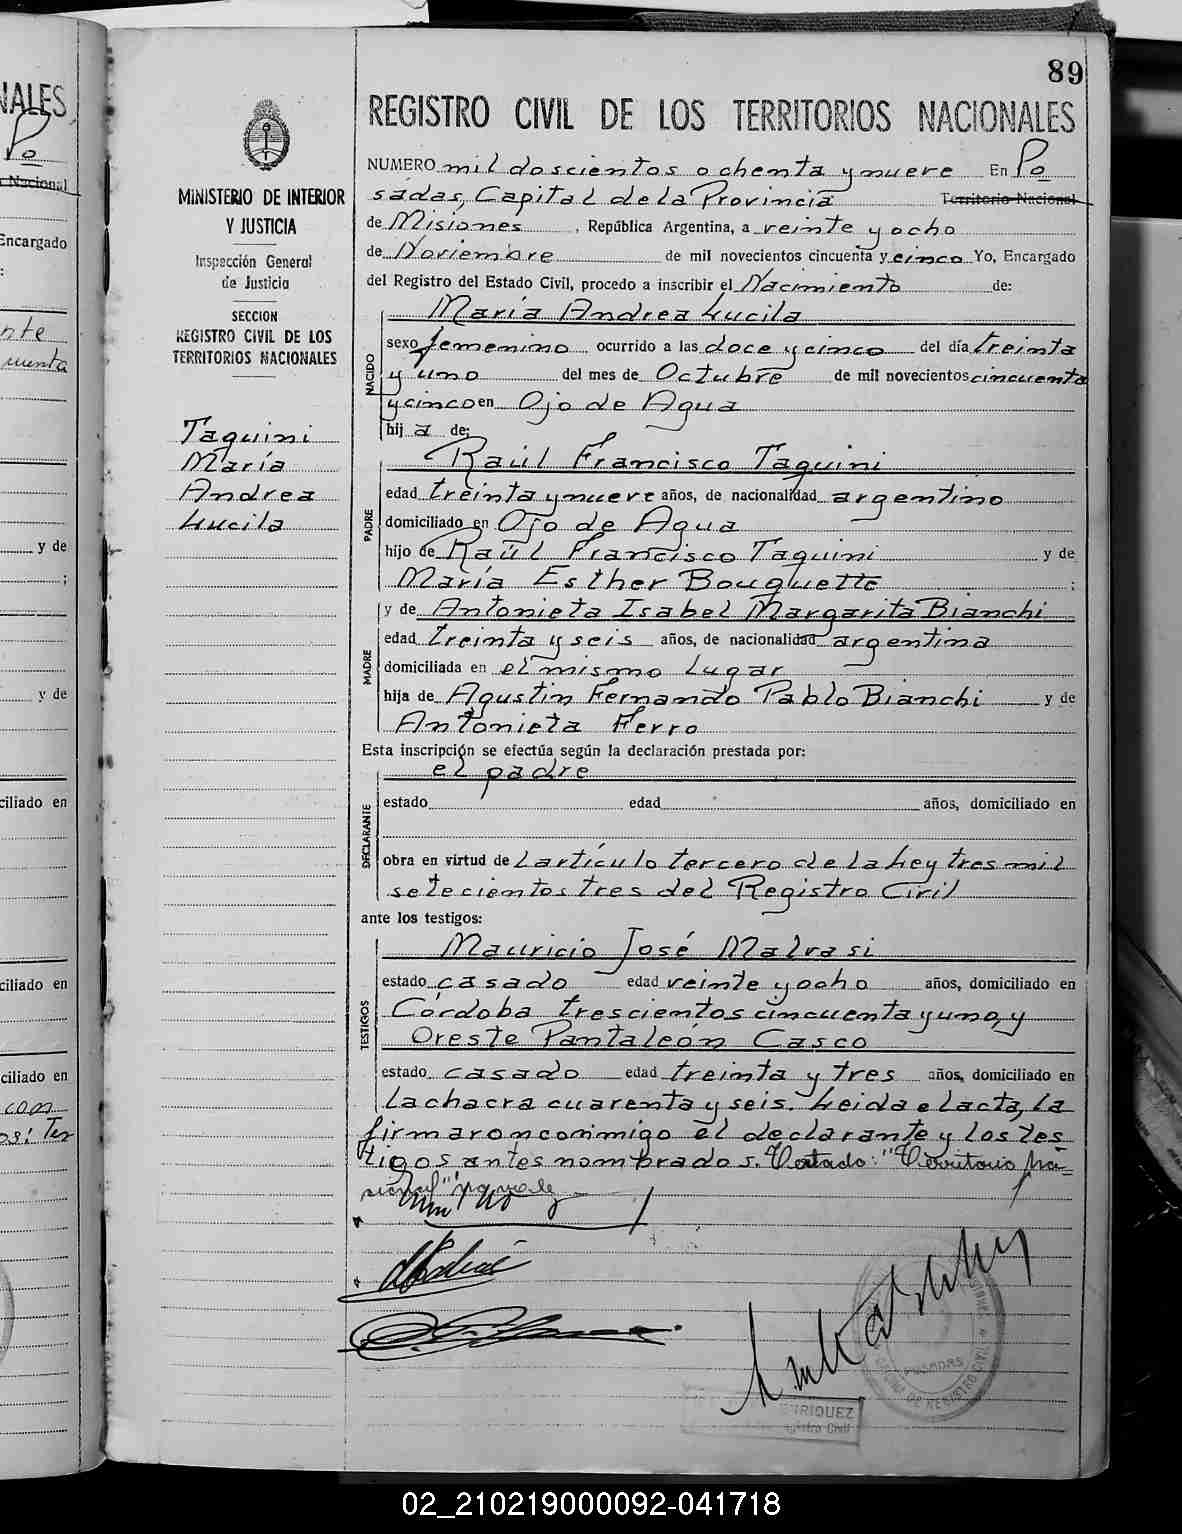 89
NALES
REGISTRO CIVIL DE LOS TERRITORIOS NACIONALES
Po
Nacional
Encargado
nte
y de
;
y de
ciliado en
ciliado en
ciliado en
con
MINISTERIO DE INTERIOR
Y JUSTICIA
Inspección General
de Justicia
SECCION
REGISTRO CIVIL DE LOS
TERRITORIOS NACIONALES
Taquini
María
Andrea
Lucila
NUMERO mil doscientos ochenta y nueve En Po
sadas, Capital de la Provincia Territorio Nacional
de Misiones, República Argentina, a veinte y ocho
de Noviembre de mil novecientos cincuenta y cinco Yo, Encargado
del Registro del Estado Civil, procedo a inscribir el Nacimiento de:
NACIDO
María Andrea Lucila
sexo femenino ocurrido a las doce y cinco del día treinta
y uno del mes de Octubre de mil novecientos cincuenta
y cinco en Ojo de Agua
hij a de:
PADRE
Raúl Francisco Taquini
edad treinta y nueve años, de nacionalidad argentino
domiciliado en Ojo de Agua
hijo de Raúl Francisco Taquini y de
María Esther Bouquette ;
MADRE
y de Antonieta Isabel Margarita Bianchi
edad treinta y seis años, de nacionalidad argentina
domiciliada en el mismo lugar
hija de Agustin Fernando Pablo Bianchi y de
Antonieta Ferro
Esta inscripción se efectúa según la declaración prestada por:
DECLARANTE
el padre
estado edad años, domiciliado en
obra en virtud de l artículo tercero de la Ley tres mil
setecientos tres del Registro Civil
ante los testigos:
TESTIGOS
Mauricio José Malvasi
estado casado edad veinte y ocho años, domiciliado en
Córdoba trescientos cincuenta y uno, y
Oreste Pantaleón Casco
estado casado edad treinta y tres años, domiciliado en
la chacra cuarenta y seis. Leida el acta, la
firmaron conmigo el declarante y los tes
tigos antes nombrados. Testado: "Territorio Na-
cional" no vale
POSADAS
OFICINA DE REGISTRO CIVIL
ENRIQUEZ
Registro Civil
02_210219000092-041718